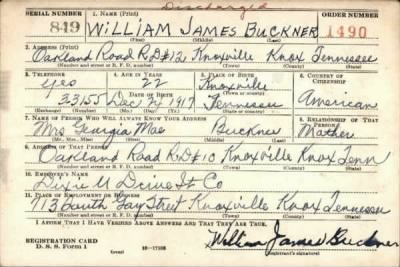 Discharged
SERIAL NUMBER 1. NAME (Print) ORDER NUMBER
849 William James Buckner 1490
(First) (Middle) (Last)
2. ADDRESS (Print)
Oakland Road R.D #12 Knoxville Knox Tennessee
(Number and street or R. F. D. number) (Town) (County) (State)
3. TELEPHONE 4. AGE IN YEARS 5. PLACE OF BIRTH 6. COUNTRY OF CITIZENSHIP
Yes 22 Knoxville
33155 Dec 24 1917 Tennessee American
7. NAME OF PERSON WHO WILL ALWAYS KNOW YOUR ADDRESS 8. RELATIONSHIP OF THAT PERSON
Mrs Georgia Mae Buckner Mother
(Mr., Mrs., Miss) (First) (Middle) (Last)
9. ADDRESS OF THAT PERSON
Oakland Road R.D #10 Knoxville Knox Tenn
(Number and street or R. F. D. number) (Town) (County) (State)
10. EMPLOYER'S NAME
Dixie U Drive It Co
11. PLACE OF EMPLOYMENT OR BUSINESS
713 South Gay Street Knoxville Knox Tennessee
(Number and street or R. F. D. number) (Town) (County) (State)
I AFFIRM THAT I HAVE VERIFIED ABOVE ANSWERS AND THAT THEY ARE TRUE.
REGISTRATION CARD William James Buckner
D. S. S. Form 1 (over) (Registrant's signature)